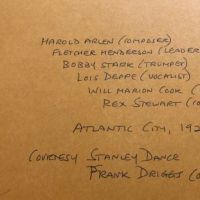 HAROLD ARLEN (COMPOSER)
FLETCHER HENDERSON (LEADER
BOBBY STARK (TRUMPET)
LOIS DEPPE (VOCALIST)
WILL MARION COOK (
REX STEWART (CO
ATLANTIC CITY, 192
COURTESY STANLEY DANCE
FRANK DRIGGS (CO